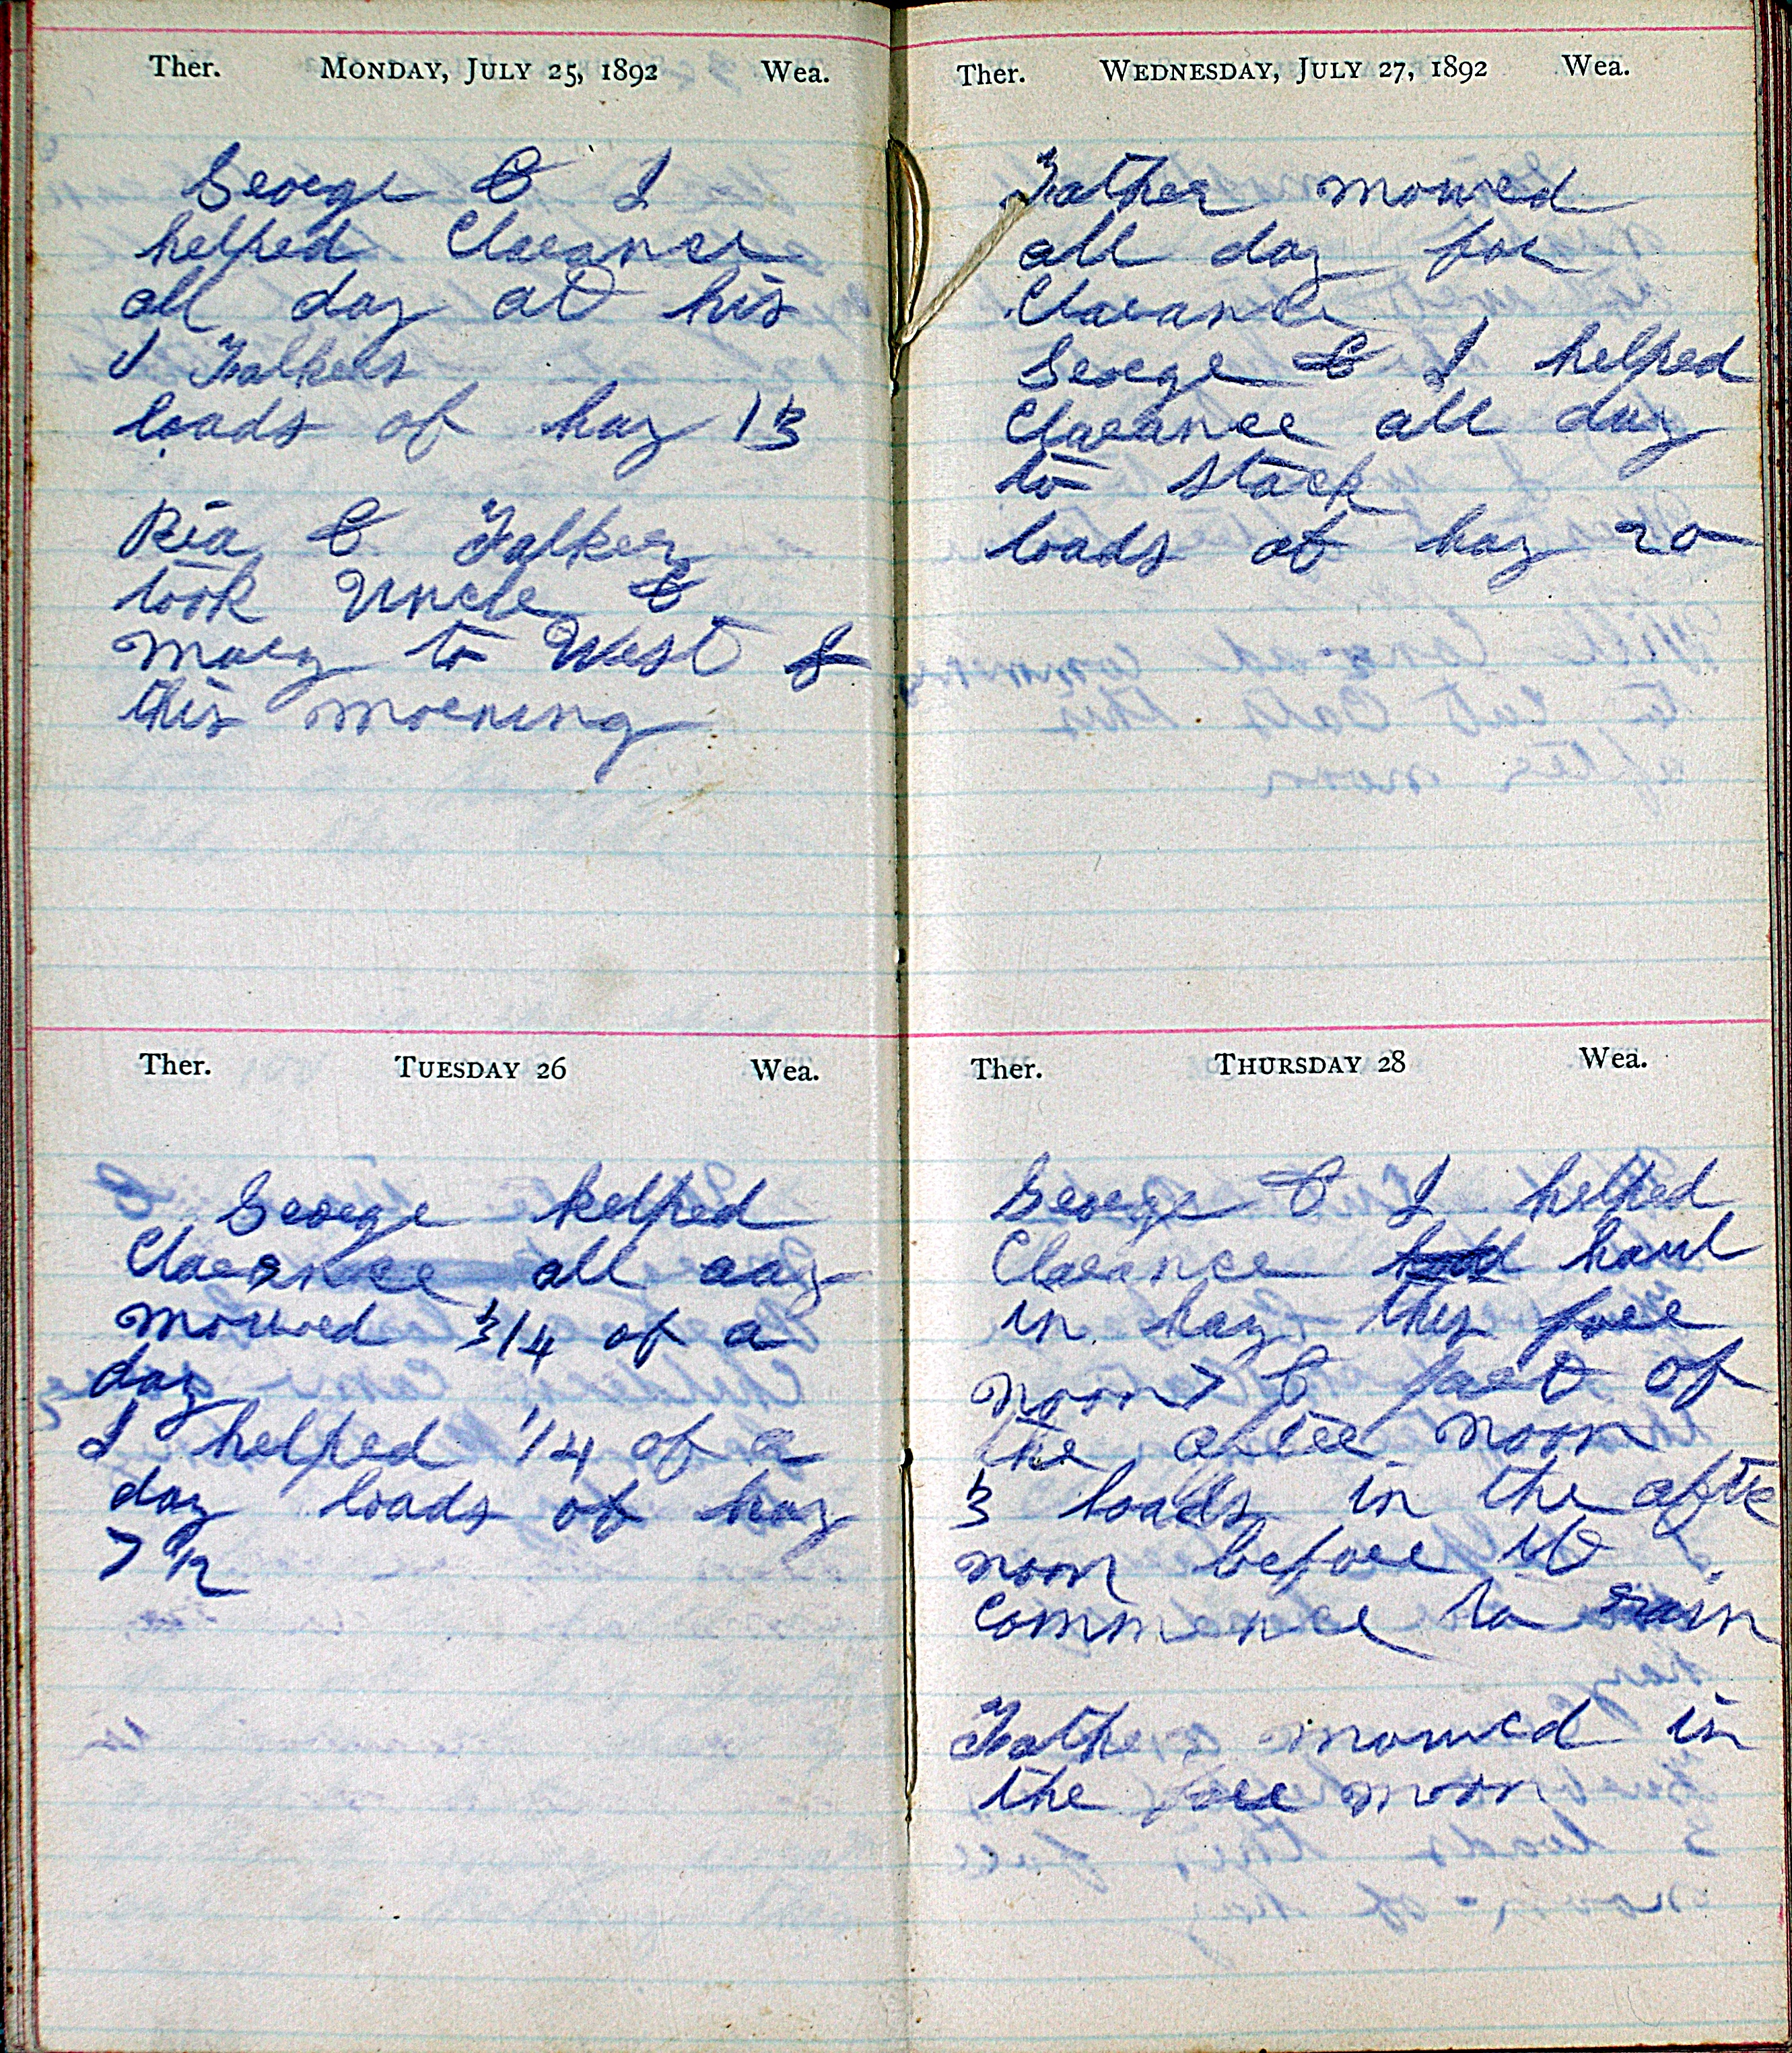 Ther. Monday, July 25, 1892 Wea.
George & I
helped Clarance
all day at his
& Falkers
loads of hay 13
Ria & Falker
took Uncle &
Mary to West &
this morning
Ther. Tuesday 26 Wea.
George helped
Clarence all day
mowed 3/4 of a
day
I helped 1/4 of a
day loads of hay
7 1/2
Ther. Wednesday, July 27, 1892 Wea.
Father mowed
all day for
Clarance
George & I helped
Clarance all day
to stack
loads of hay 20
Ther. Thursday 28 Wea.
George & I helped
Clarance haul
in hay this fore
noon & part of
the after noon
3 loads in the afte
noon before it
commence to rain
Father mowed in
the fore noon